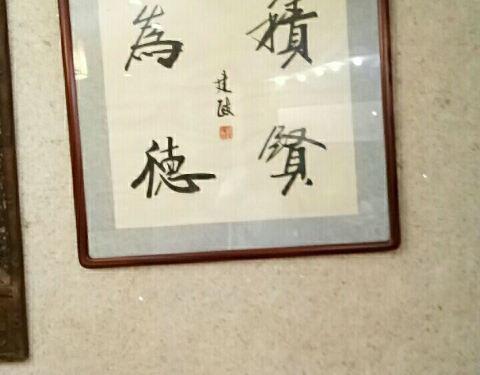 積賢
為德
建政